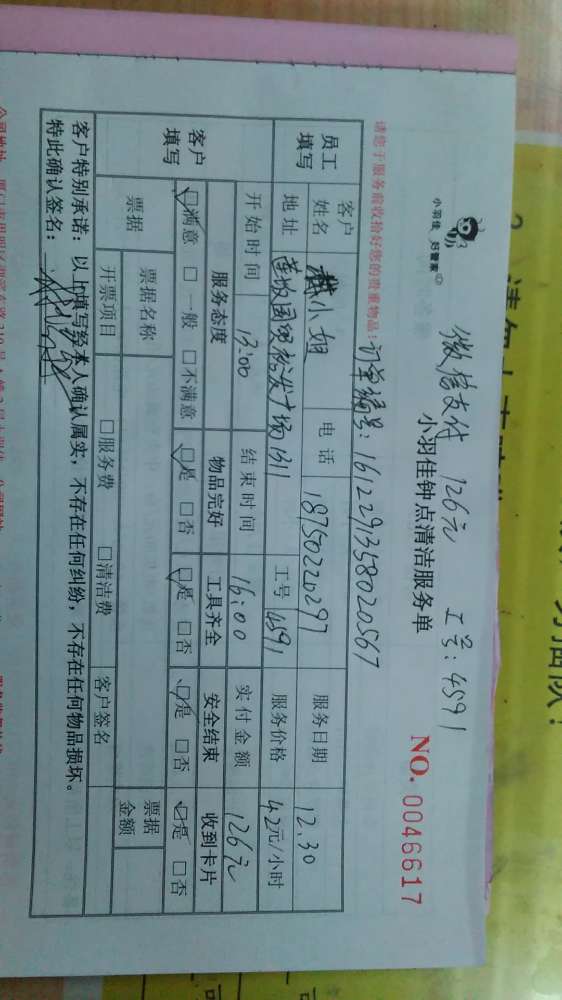 微信支付 126元 工号：4591
小羽佳 好管家
小羽佳钟点清洁服务单
NO. 0046617
请您于服务前收拾好您的贵重物品：订单编号：1612291358020567
员工填写
客户姓名 戴小姐 电话 18750220297 服务日期 12.30
地址 莲坂国贸裕发广场1311 工号 4591 服务价格 42元/小时
开始时间 13:00 结束时间 16:00 实付金额 126元
客户填写
服务态度 物品完好 工具齐全 安全结束 收到卡片
☑满意 □一般 □不满意 ☑是 □否 ☑是 □否 ☑是 □否 ☑是 □否
票据 票据名称 票据金额
开票项目 □服务费 □清洁费 客户签名
客户特别承诺：以上填写经本人确认属实，不存在任何纠纷，不存在任何物品损坏。
特此确认签名：